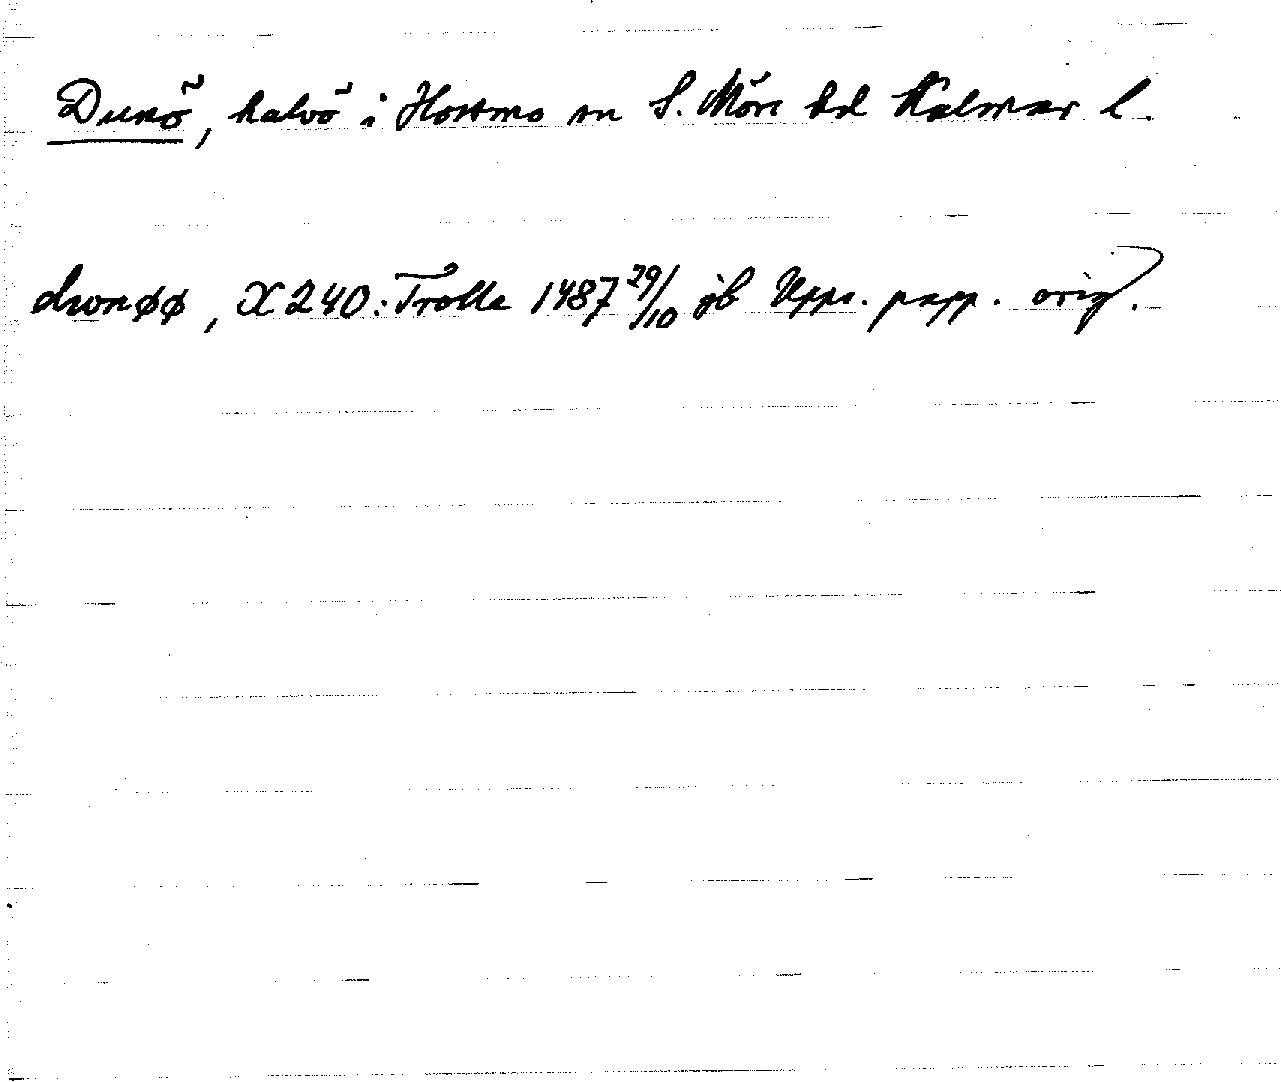 Dunö, halvö i Hossmo sn S. Möre hd Kalmar l.
dwnøø, X 240: Trolle 1487 29/10 jb Upps. papp. orig.